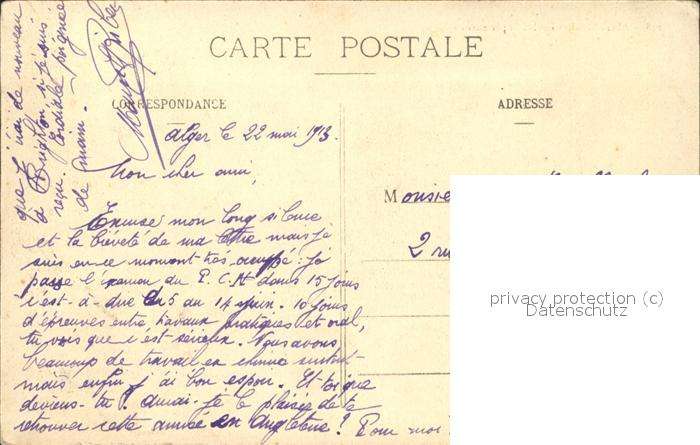 CARTE POSTALE
CORRESPONDANCE
ADRESSE
Alger le 22 mai 1913.
Mon cher ami,
Excuse mon long silence
et la brièveté de ma lettre mais je
suis en ce moment très occupé : je
passe l'examen du P.C.N dans 15 jours
c'est-à-dire du 5 au 14 juin. 10 jours
d'épreuves entre, travaux pratiques et oral,
tu vois que c'est sérieux. Nous avons
beaucoup de travail en chimie surtout
mais enfin j'ai bon espoir. Et toi que
deviens-tu ? aurai-je le plaisir de te
retrouver cette année en Angleterre ? Pour moi
que j'irai de nouveau
à Brighton si je suis
reçu. Cordiale poignée
de main.
Monsie
2 ru
privacy protection (c)
Datenschutz